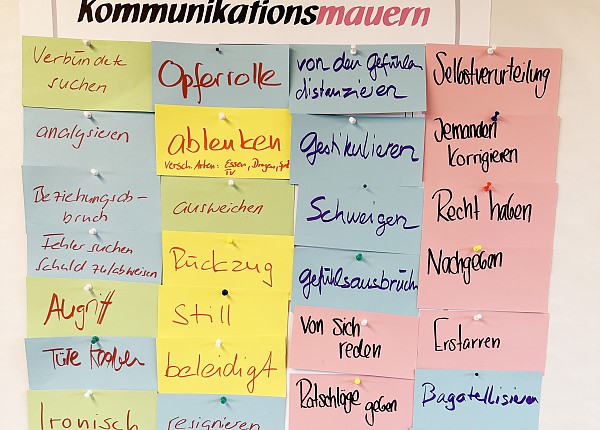 Kommunikationsmauern
Verbündete
suchen
analysieren
Beziehungsab-
bruch
Fehler suchen
schuld zuweisen
Angriff
Türe knallen
Ironisch
Opferrolle
ablenken
Versch. Arten: Essen, Drogen,
TV
ausweichen
Rückzug
Still
beleidigt
resignieren
von den gefühlen
distanzieren
Gestikulieren
Schweigen
gefühlsausbruch
Von Sich
reden
Ratschläge geben
Selbstverurteilung
Jemanden
Korrigieren
Recht haben
Nachgeben
Erstarren
Bagatellisieren